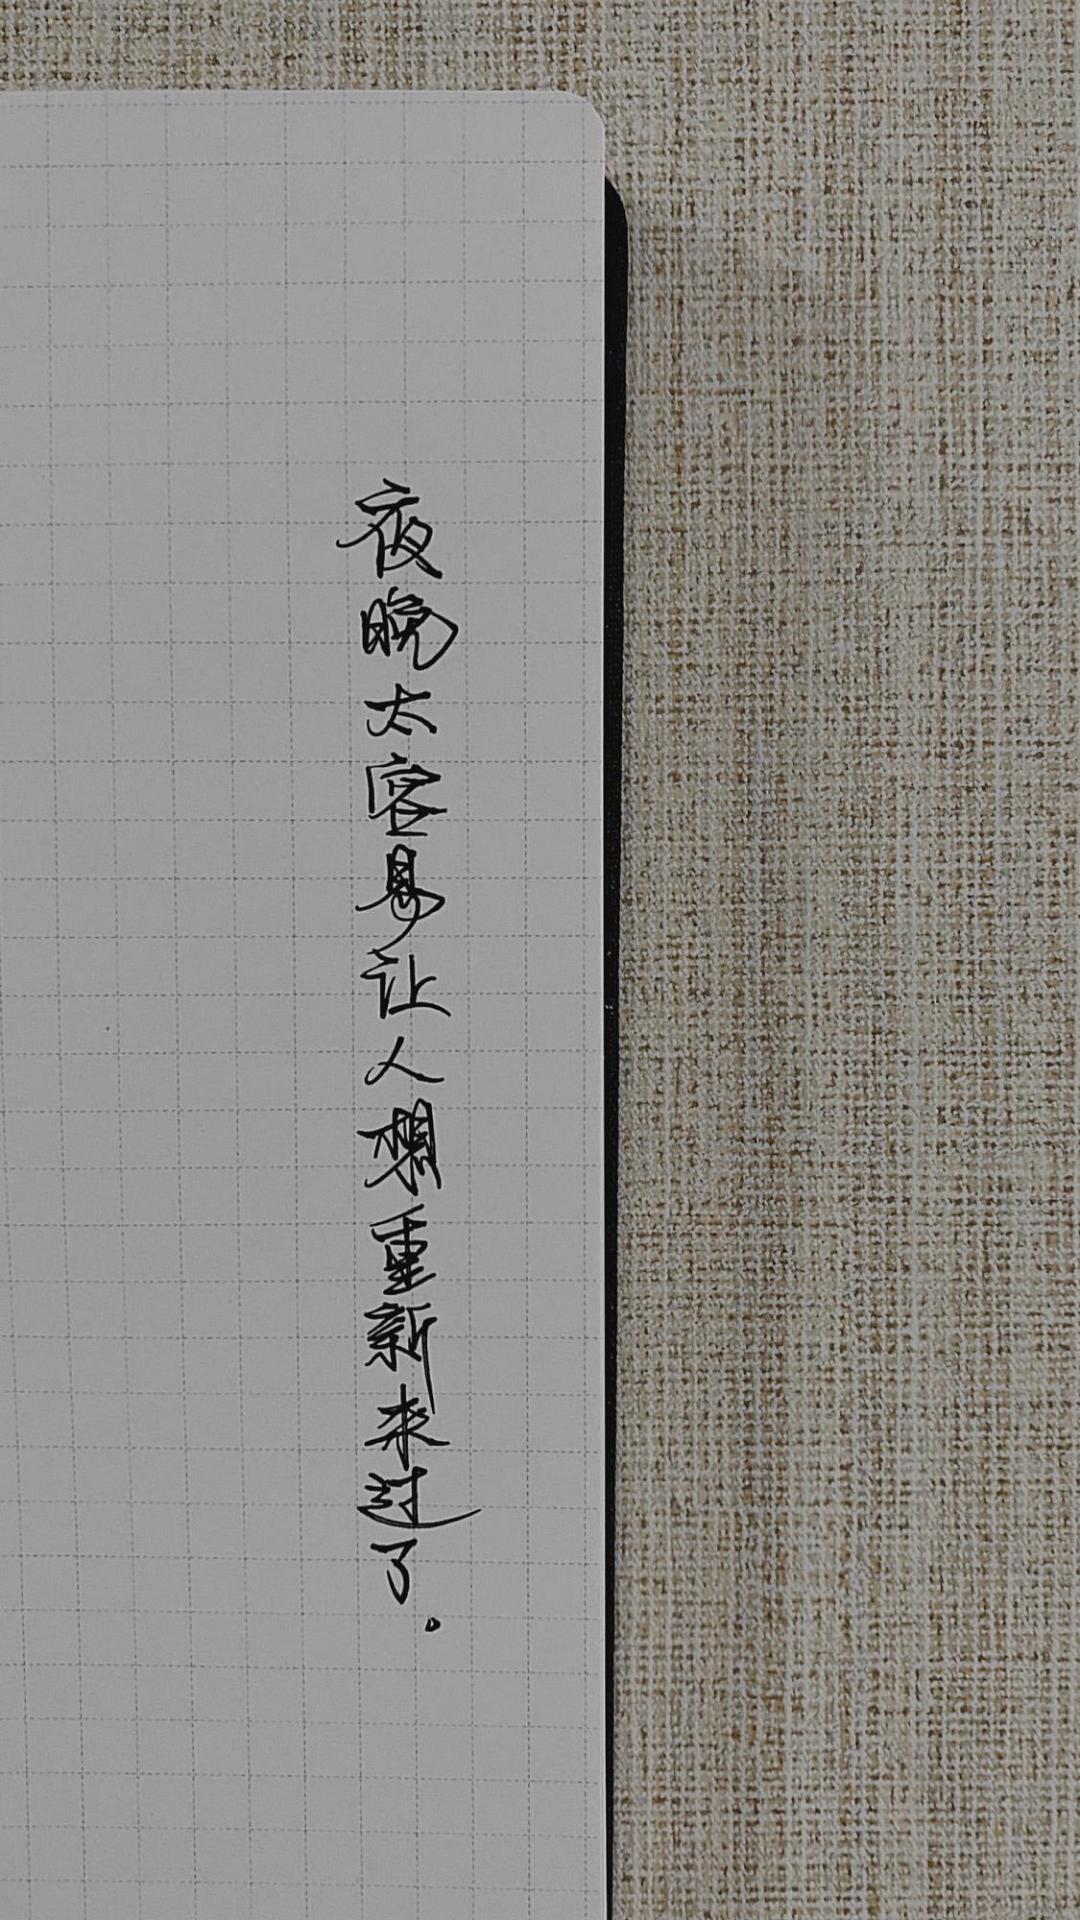 夜晚太容易让人想重新来过了。